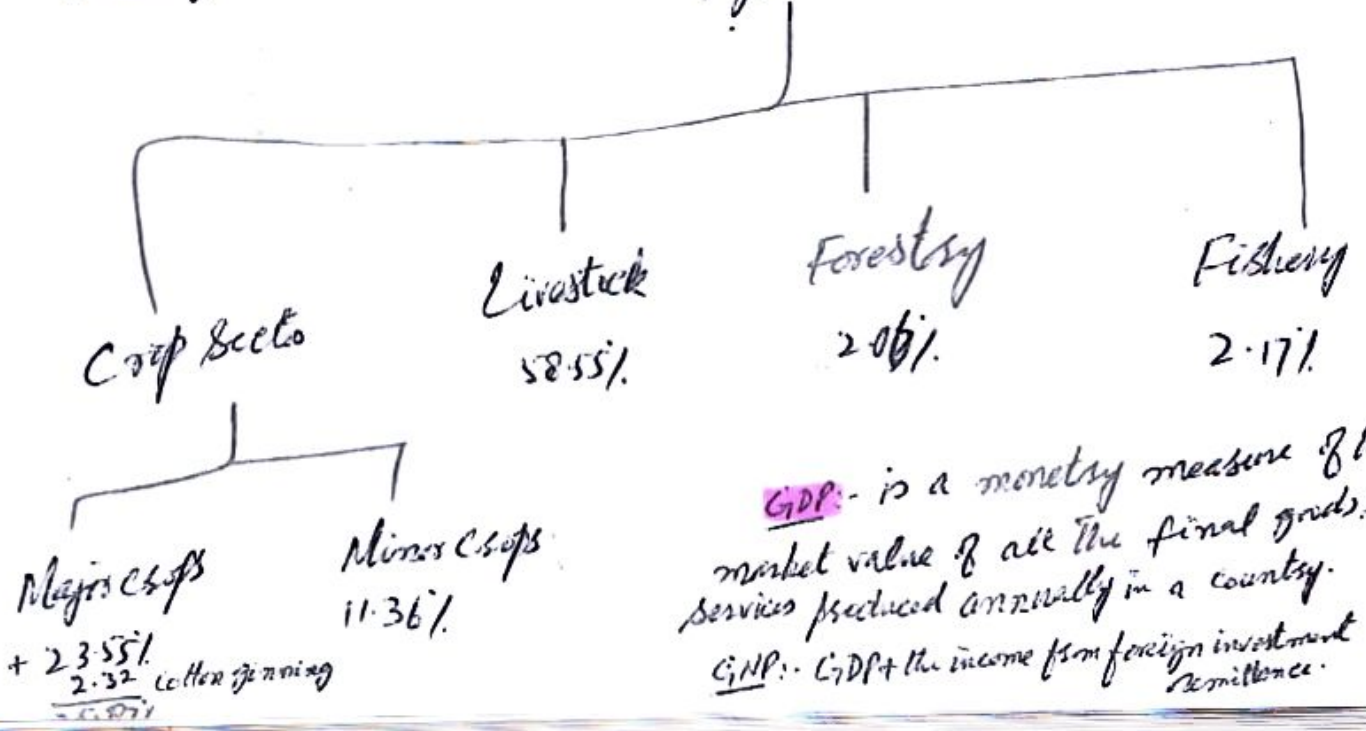 Crop Secto
Livestock
58.55%
Forestry
2.06%
Fishery
2.17%
Major crops
+ 23.55%
2.32 cotton ginning
Minor crops
11.36%
GDP:- is a monetry measure of
market value of all the final goods.
services produced annually in a country.
GNP:- GDP + the income from foreign investment
remittence.